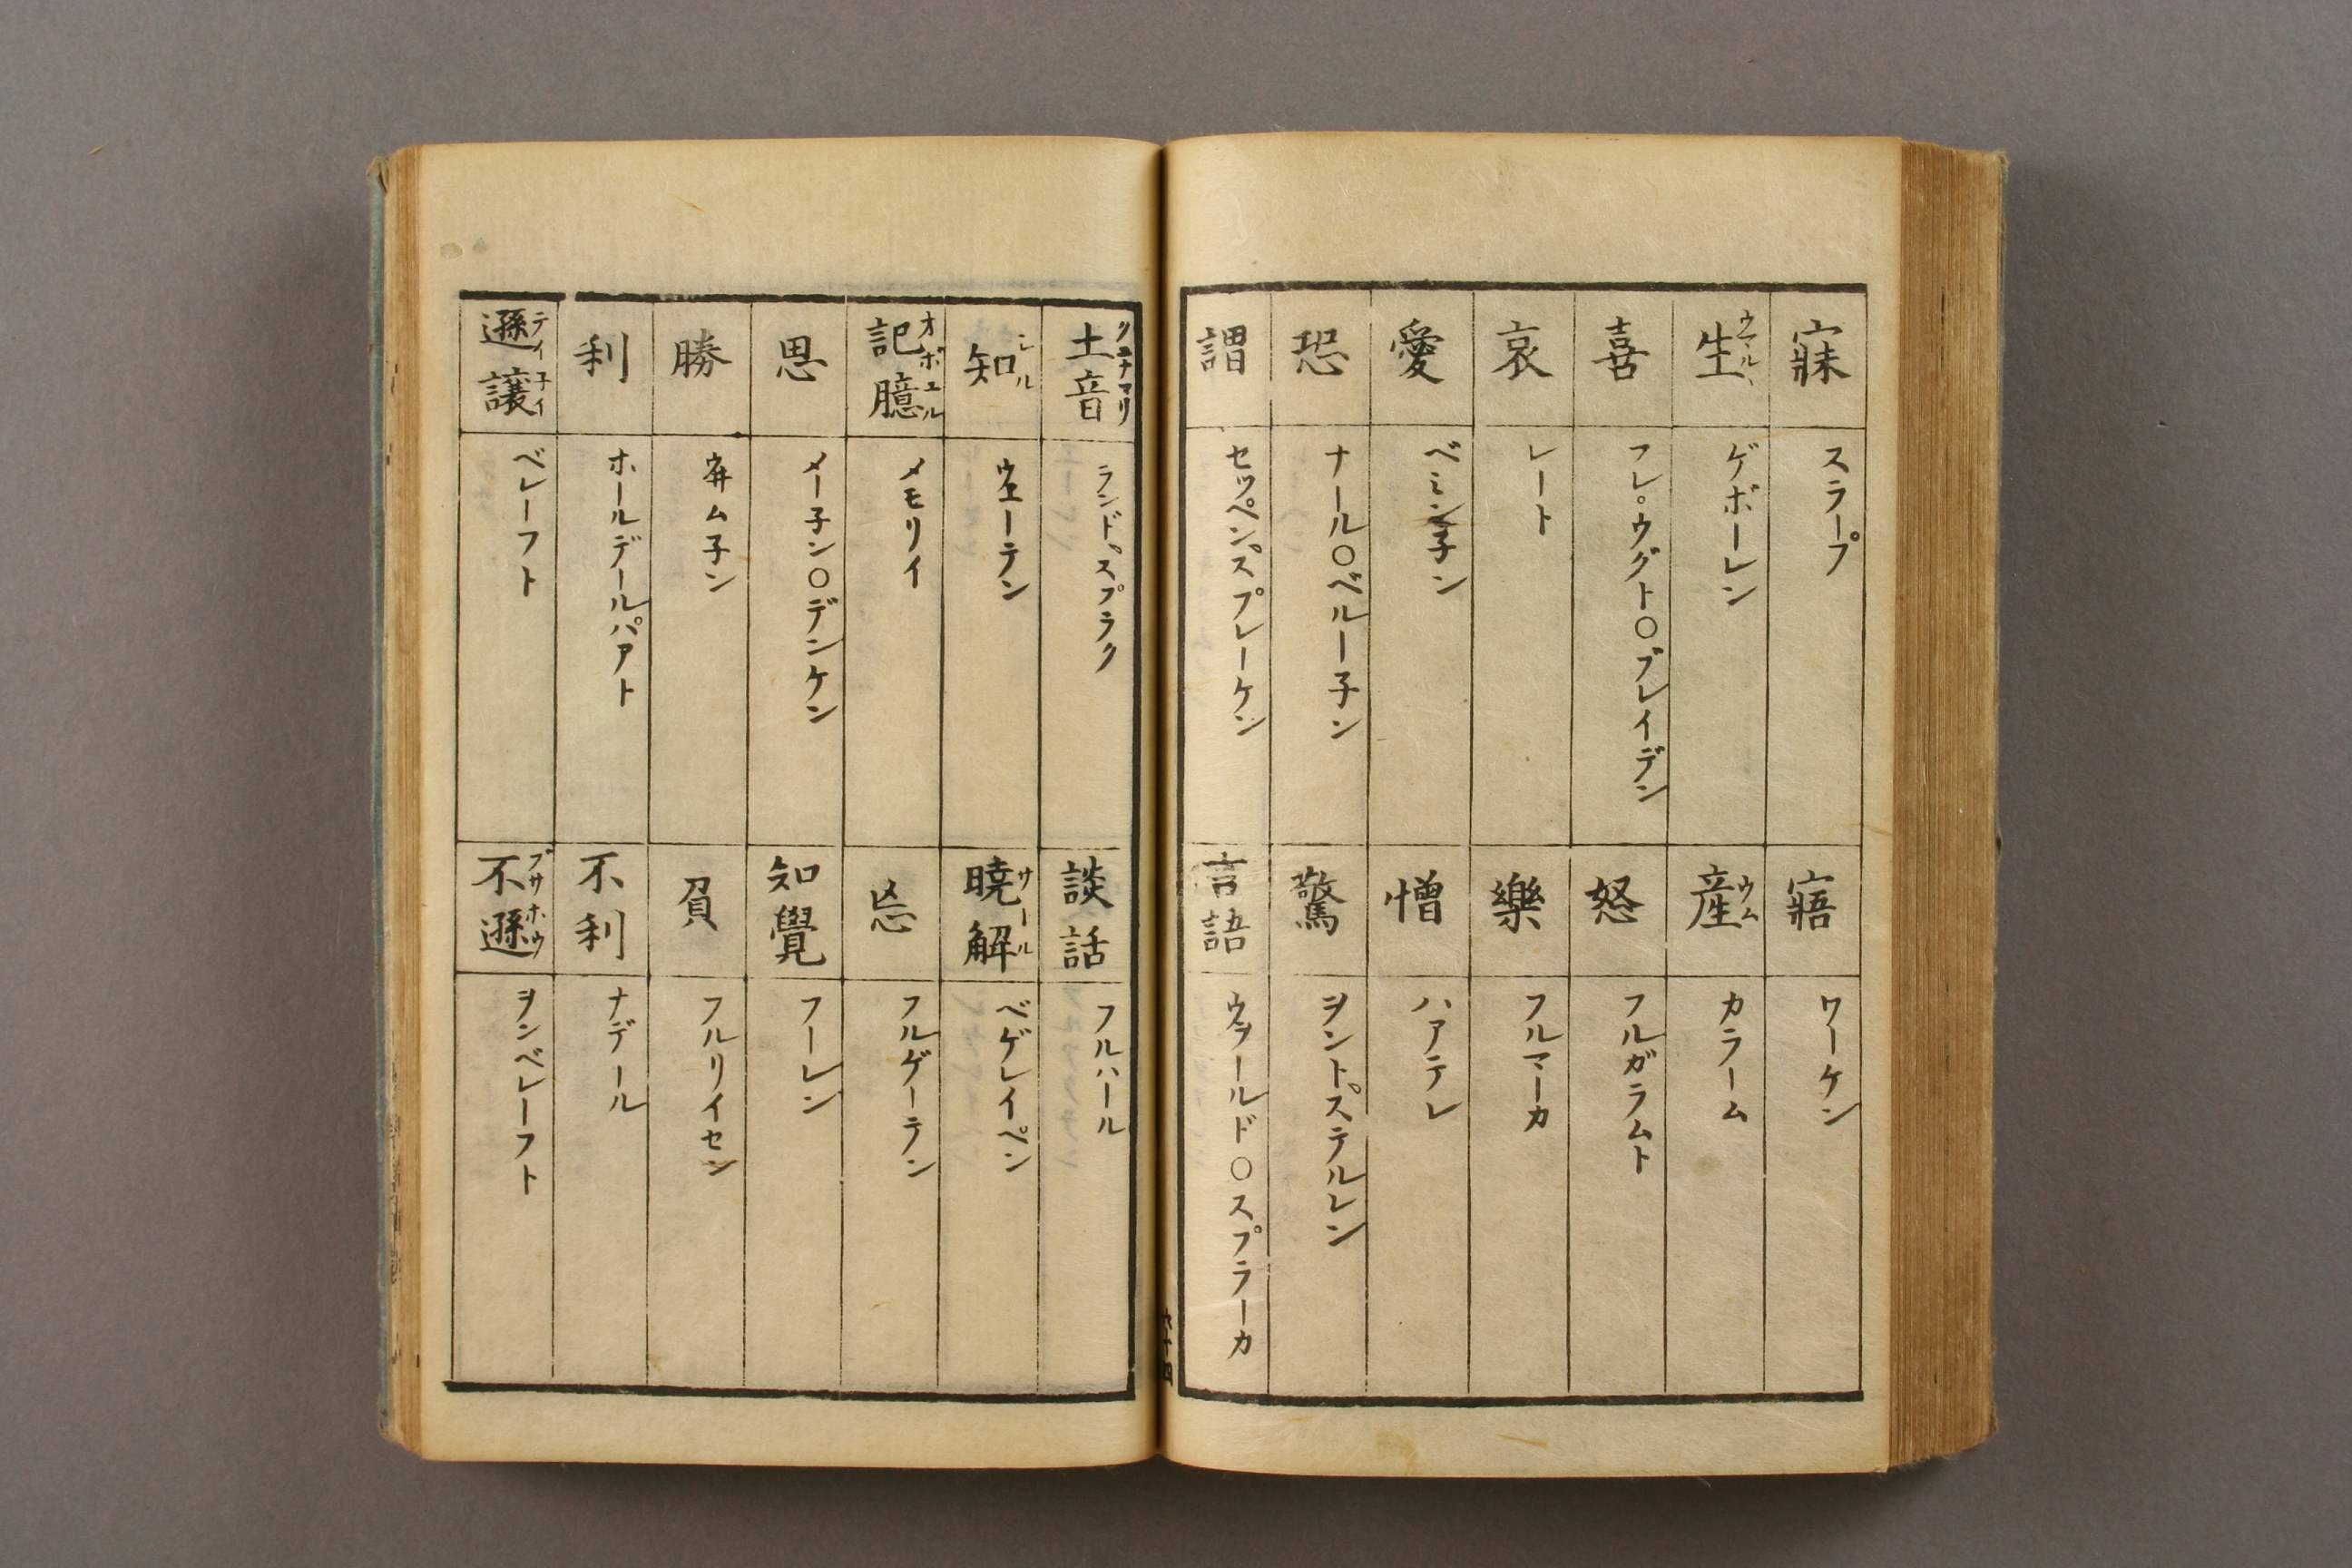 寐 スラープ
生 ウマルヽ ゲボーレン
喜 フレ。ウグト〇ブレイデン
哀 レート
愛 ベミン子ン
恐 ナール〇ベルー子ン
謂 セッペンスプレーケン
寤 ワーケン
産 ウム カラーム
怒 フルガラムト
樂 フルマーカ
憎 ハアテレ
驚 ヲントステルレン
言語 ウヲールド〇スプラーカ
六十四
土音 クニナマリ ランドスプラク
知 シル ウエーテン
記臆 オボエル メモリイ
思 メー子ン〇デンケン
勝 ウ井ム子ン
利 ホールデールパアト
遜譲 テイ子イ ベレーフト
談話 フルハール
暁解 サール ベゲレイペン
忘 フルゲーテン
知覺 フーレン
負 フルリイセン
不利 ナデール
不遜 ブサホウ ヲンベレーフト